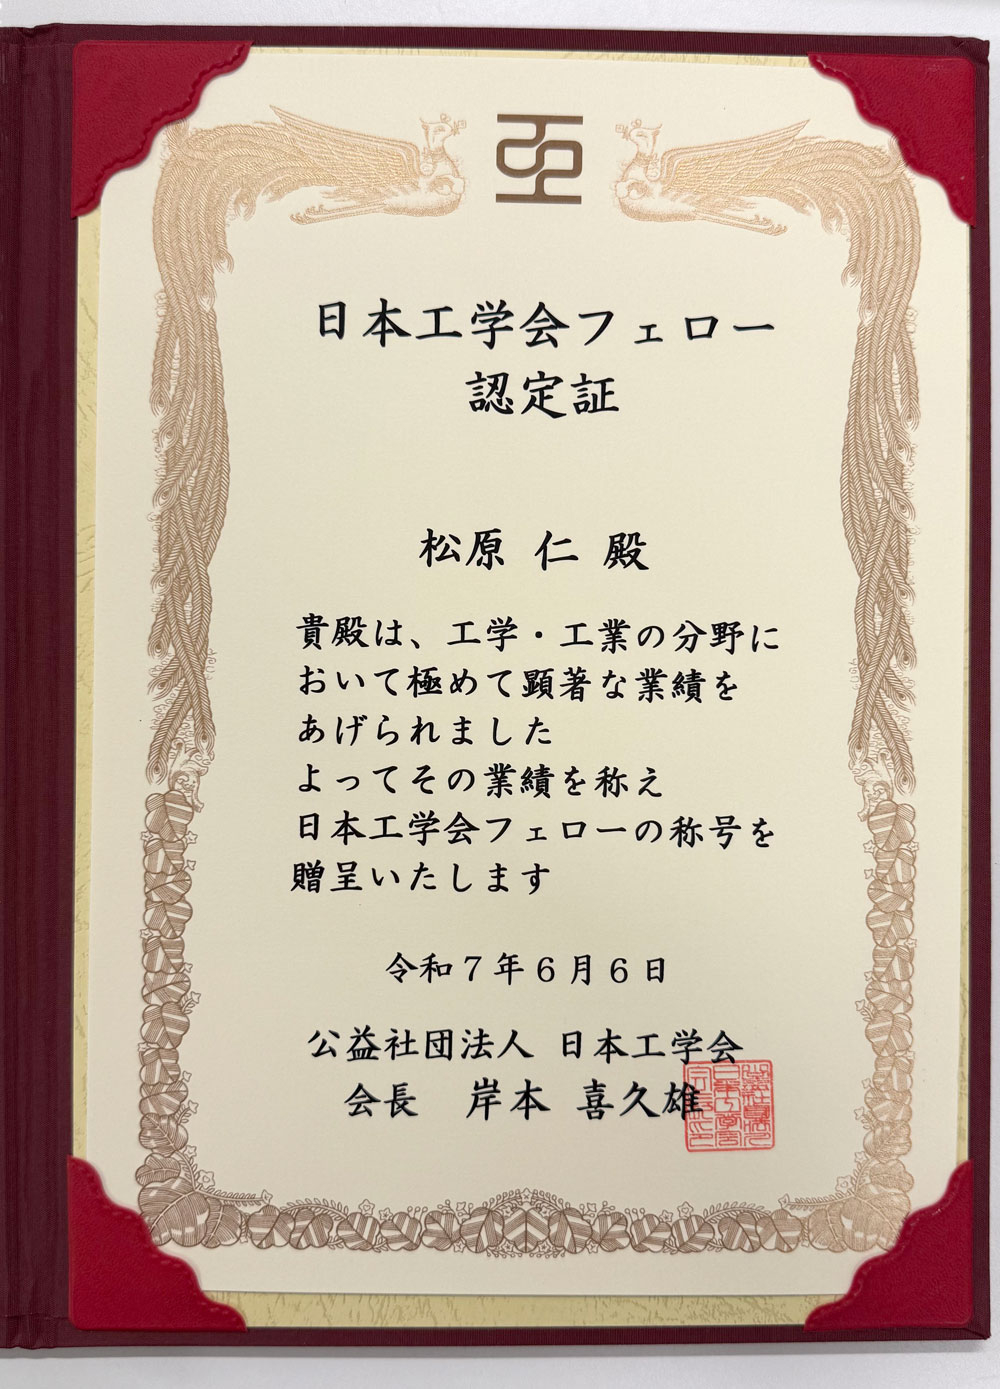 日本工学会フェロー
認定証
松原 仁 殿
貴殿は、工学・工業の分野に
おいて極めて顕著な業績を
あげられました
よってその業績を称え
日本工学会フェローの称号を
贈呈いたします
令和７年６月６日
公益社団法人 日本工学会
会長 岸本 喜久雄